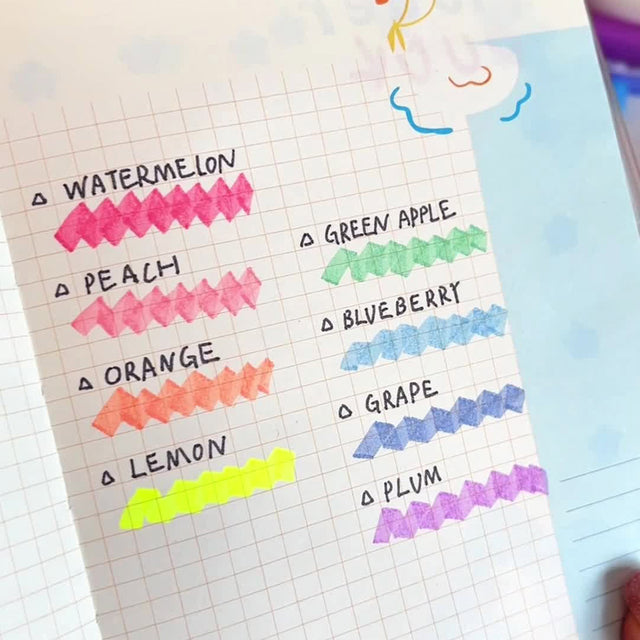 △ WATERMELON
△ PEACH
△ ORANGE
△ LEMON
△ GREEN APPLE
△ BLUEBERRY
△ GRAPE
△ PLUM